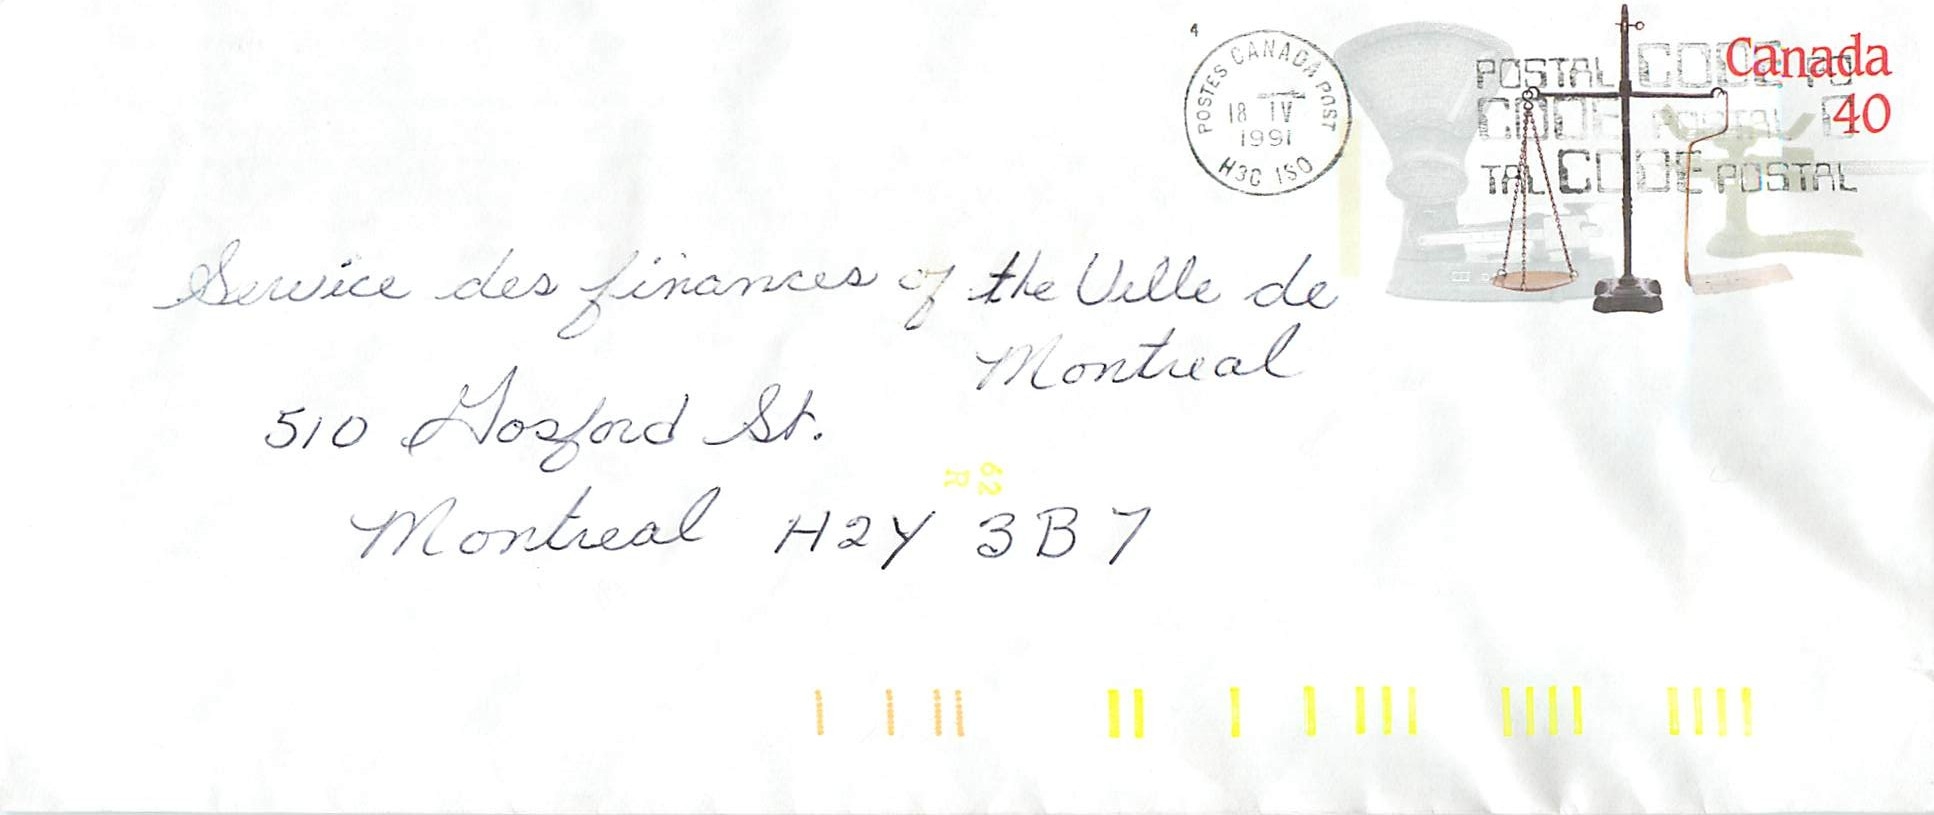 4
POSTES CANADA POST
18 IV
1991
H3C 1S0
POSTAL CODE PO
CODE POSTAL CO
TAL CODE POSTAL
Canada
40
Service des finances of the Ville de
Montreal
510 Gosford St.
62
R
Montreal H2Y 3B7